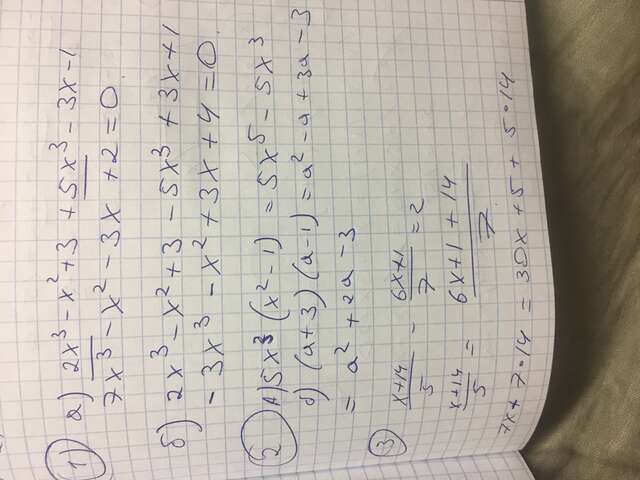 1) а) 2x³ - x² + 3 + 5x³ - 3x - 1
7x³ - x² - 3x + 2 = 0
б) 2x³ - x² + 3 - 5x³ + 3x + 1
- 3x³ - x² + 3x + 4 = 0
2) А) 5x³ (x² - 1) = 5x⁵ - 5x³
б) (a+3)(a-1) = a² - a + 3a - 3
= a² + 2a - 3
3) x+14/5 - 6x+1/7 = 2
x+14/5 = 6x+1+14/7
7x + 7·14 = 30x + 5 + 5·14